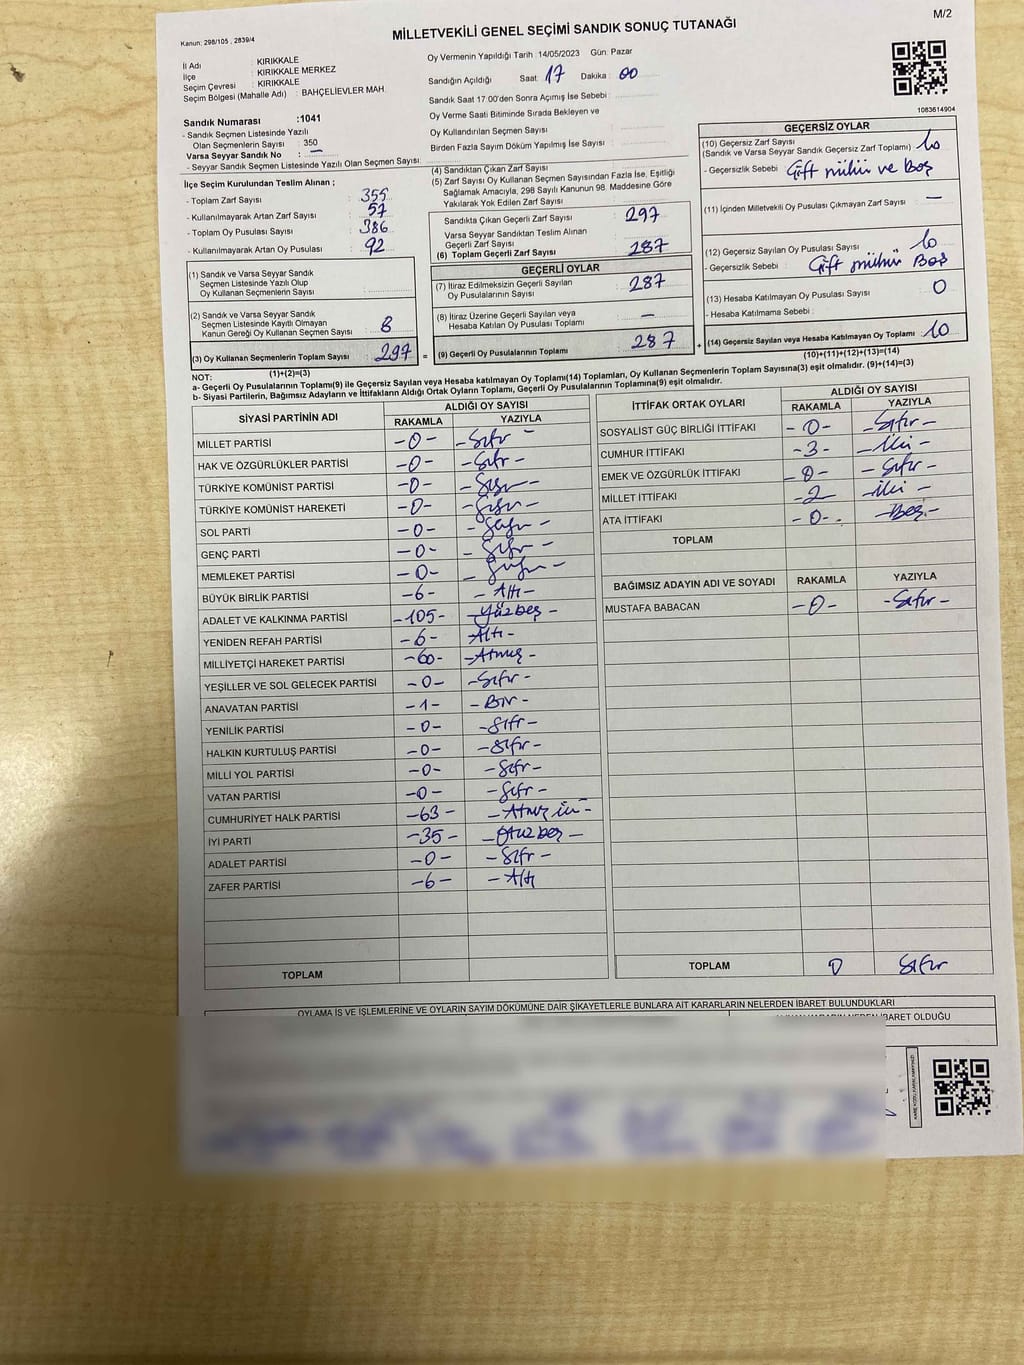 M/2
Kanun: 298/105 , 2839/4
MİLLETVEKİLİ GENEL SEÇİMİ SANDIK SONUÇ TUTANAĞI
İl Adı : KIRIKKALE
İlçe : KIRIKKALE MERKEZ
Seçim Çevresi : KIRIKKALE
Seçim Bölgesi (Mahalle Adı) : BAHÇELİEVLER MAH.
Sandık Numarası :1041
- Sandık Seçmen Listesinde Yazılı
Olan Seçmenlerin Sayısı : 350
Varsa Seyyar Sandık No : —
- Seyyar Sandık Seçmen Listesinde Yazılı Olan Seçmen Sayısı:
Oy Vermenin Yapıldığı Tarih : 14/05/2023 Gün: Pazar
Sandığın Açıldığı Saat: 17 Dakika: 00
Sandık Saat 17:00'den Sonra Açımış İse Sebebi :
Oy Verme Saati Bitiminde Sırada Bekleyen ve
Oy Kullandırılan Seçmen Sayısı :
Birden Fazla Sayım Döküm Yapılmış İse Sayısı :
1083614904
İlçe Seçim Kurulundan Teslim Alınan ;
- Toplam Zarf Sayısı : 355
- Kullanılmayarak Artan Zarf Sayısı : 57
- Toplam Oy Pusulası Sayısı : 386
- Kullanılmayarak Artan Oy Pusulası : 92
(1) Sandık ve Varsa Seyyar Sandık
Seçmen Listesinde Yazılı Olup
Oy Kullanan Seçmenlerin Sayısı :
(2) Sandık ve Varsa Seyyar Sandık
Seçmen Listesinde Kayıtlı Olmayan
Kanun Gereği Oy Kullanan Seçmen Sayısı : 8
(3) Oy Kullanan Seçmenlerin Toplam Sayısı : 297
(1)+(2)=(3)
(4) Sandıktan Çıkan Zarf Sayısı
(5) Zarf Sayısı Oy Kullanan Seçmen Sayısından Fazla İse, Eşitliği
Sağlamak Amacıyla, 298 Sayılı Kanunun 98. Maddesine Göre
Yakılarak Yok Edilen Zarf Sayısı :
Sandıkta Çıkan Geçerli Zarf Sayısı : 297
Varsa Seyyar Sandıktan Teslim Alınan
Geçerli Zarf Sayısı :
(6) Toplam Geçerli Zarf Sayısı : 287
GEÇERLİ OYLAR
(7) İtiraz Edilmeksizin Geçerli Sayılan
Oy Pusulalarının Sayısı : 287
(8) İtiraz Üzerine Geçerli Sayılan veya
Hesaba Katılan Oy Pusulası Toplamı : —
= (9) Geçerli Oy Pusulalarının Toplamı : 287
GEÇERSİZ OYLAR
(10) Geçersiz Zarf Sayısı
(Sandık ve Varsa Seyyar Sandık Geçersiz Zarf Toplamı) : 10
- Geçersizlik Sebebi : Çift mühür ve Boş
(11) İçinden Milletvekili Oy Pusulası Çıkmayan Zarf Sayısı : —
(12) Geçersiz Sayılan Oy Pusulası Sayısı : 10
- Geçersizlik Sebebi : Çift mühür Boş
(13) Hesaba Katılmayan Oy Pusulası Sayısı : 0
- Hesaba Katılmama Sebebi :
+ (14) Geçersiz Sayılan veya Hesaba Katılmayan Oy Toplamı : 10
(10)+(11)+(12)+(13)=(14)
NOT:
a- Geçerli Oy Pusulalarının Toplamı(9) ile Geçersiz Sayılan veya Hesaba katılmayan Oy Toplamı(14) Toplamları, Oy Kullanan Seçmenlerin Toplam Sayısına(3) eşit olmalıdır. (9)+(14)=(3)
b- Siyasi Partilerin, Bağımsız Adayların ve İttifakların Aldığı Ortak Oyların Toplamı, Geçerli Oy Pusulalarının Toplamına(9) eşit olmalıdır.
SİYASİ PARTİNİN ADI ALDIĞI OY SAYISI
RAKAMLA YAZIYLA
MİLLET PARTİSİ -0- -Sıfır-
HAK VE ÖZGÜRLÜKLER PARTİSİ -0- -Sıfır-
TÜRKİYE KOMÜNİST PARTİSİ -0- -Sıfır-
TÜRKİYE KOMÜNİST HAREKETİ -0- -Sıfır-
SOL PARTİ -0- -Sıfır-
GENÇ PARTİ -0- -Sıfır-
MEMLEKET PARTİSİ -0- -Sıfır-
BÜYÜK BİRLİK PARTİSİ -6- -Altı-
ADALET VE KALKINMA PARTİSİ -105- -Yüzbeş-
YENİDEN REFAH PARTİSİ -6- -Altı-
MİLLİYETÇİ HAREKET PARTİSİ -60- -Atmış-
YEŞİLLER VE SOL GELECEK PARTİSİ -0- -Sıfır-
ANAVATAN PARTİSİ -1- -Bir-
YENİLİK PARTİSİ -0- -Sıfır-
HALKIN KURTULUŞ PARTİSİ -0- -Sıfır-
MİLLİ YOL PARTİSİ -0- -Sıfır-
VATAN PARTİSİ -0- -Sıfır-
CUMHURİYET HALK PARTİSİ -63- -Atmış üç-
İYİ PARTİ -35- -Otuzbeş-
ADALET PARTİSİ -0- -Sıfır-
ZAFER PARTİSİ -6- -Altı
TOPLAM
İTTİFAK ORTAK OYLARI ALDIĞI OY SAYISI
RAKAMLA YAZIYLA
SOSYALİST GÜÇ BİRLİĞİ İTTİFAKI -0- -Sıfır-
CUMHUR İTTİFAKI -3- -İki-
EMEK VE ÖZGÜRLÜK İTTİFAKI -0- -Sıfır-
MİLLET İTTİFAKI -2- -İki-
ATA İTTİFAKI -0- -Beş-
TOPLAM
BAĞIMSIZ ADAYIN ADI VE SOYADI RAKAMLA YAZIYLA
MUSTAFA BABACAN -0- -Sıfır-
TOPLAM 0 Sıfır
OYLAMA İŞ VE İŞLEMLERİNE VE OYLARIN SAYIM DÖKÜMÜNE DAİR ŞİKAYETLERLE BUNLARA AİT KARARLARIN NELERDEN İBARET BULUNDUKLARI
NEDEN İBARET OLDUĞU